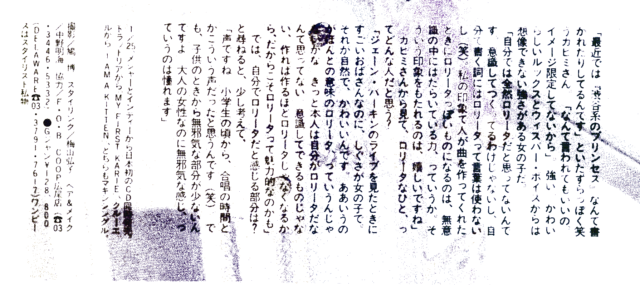 「最近では“渋谷系のプリンセス”なんて書
かれたりしてるんです」といたずらっぽく笑
うカヒミさん。「なんて言われてもいいの、
イメージ限定してないから」強い。かわい
らしいルックスとウィスパー・ボイスからは
想像できない強さがある女の子だ。
「自分では全然ロリータだと思ってないんで
す。意識してつくってるわけじゃないし、自
分で書く詞にはロリータって言葉は使わない
し（笑）。私の印象で人が曲を作ってくれた
ときにロリータっぽいものになるのは、無意
識の中にはたらいている力、っていうか、そ
ういう印象をもたれるのは、嬉しいですね」
カヒミさんから見て、ロリータなひと、っ
てどんな人だと思う？
「ジェーン・バーキンのライブを見たときに
すごいおばさんなのに、しぐさが女の子で、
それが自然で、かわいいんです。ああいうの
がほんとの意味のロリータ、っていうんじゃ
ないかな。きっと本人は自分がロリータだな
んて思ってない。意識してできるものじゃな
い、作れば作るほどロリータじゃなくなるか
ら。だからこそロリータって魅力的なのかも」
では、自分でロリータだと感じる部分は？
と尋ねると、少し考えて、
「声ですね。小学生の頃から、合唱の時間と
かこういう声だったと思うんです（笑）。で
も、子供のときから無邪気な部分が少ないん
ですよ。大人の女性なのに無邪気な感じ、っ
ていうのは憧れます」
1／25 メジャーとインディーから日本初のCD
トラットリアからMY FIRST KARIE
ルからI AM A KITTEN
撮影／鳩 博 スタイリング／梅田弘子 ヘア＆メイク
／中野明海 協力／F・O・B COOP広尾店（☎03
・3446・5332）●Gジャン￥28,800
（DELAWARE ☎03・3791・7617）ワンピー
スはスタイリスト私物